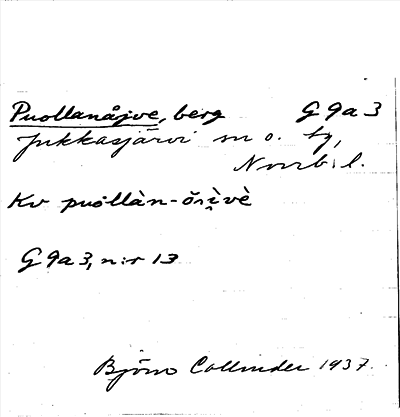 Puollanåjve, berg G 9a 3
Jukkasjärvi sn o. tg,
Norrb. l.
Kv puollàn-
G 9a 3, n:r 13
Björn Collinder 1937.